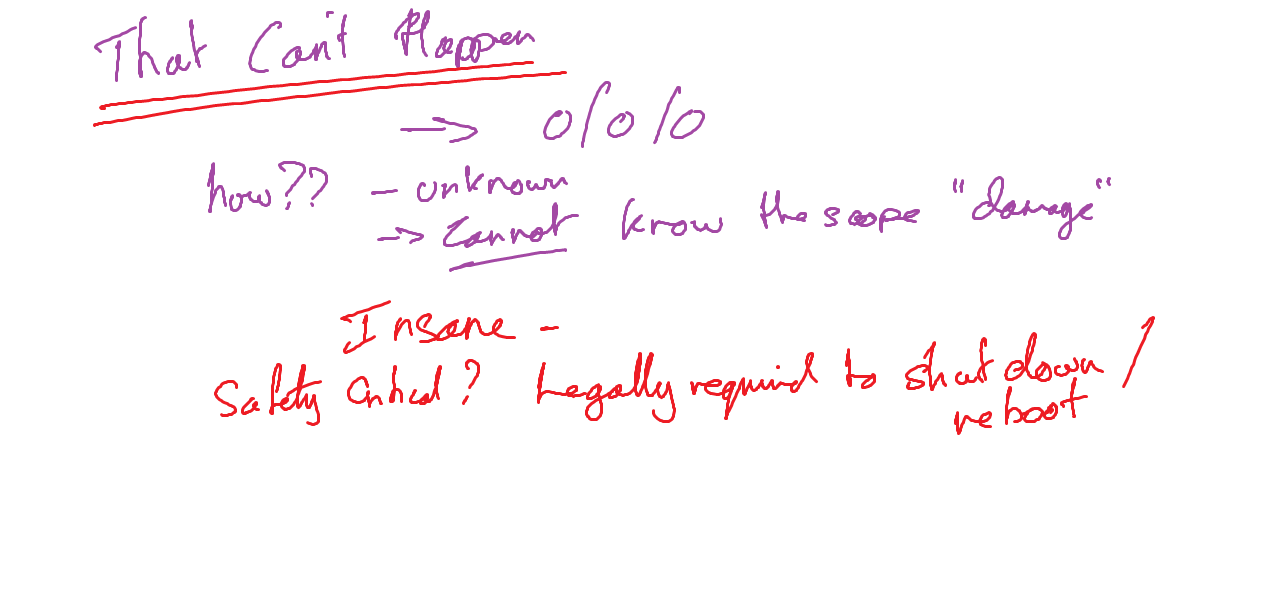 That Can't Happen
-> 0/0/0
how?? - unknown
-> cannot know the scope "damage"
Insane -
Safety Critical? Legally required to shut down /
reboot